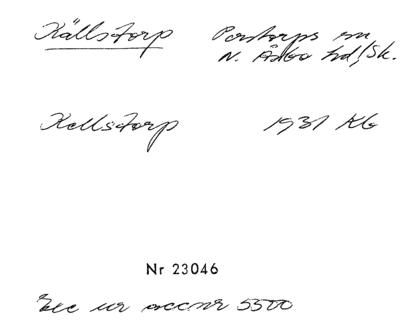 Källstorp Perstorps sn
N. Åsbo hd, Sk.
Kellstorp 1931 KG
Nr 23046
Exc ur accnr 5500